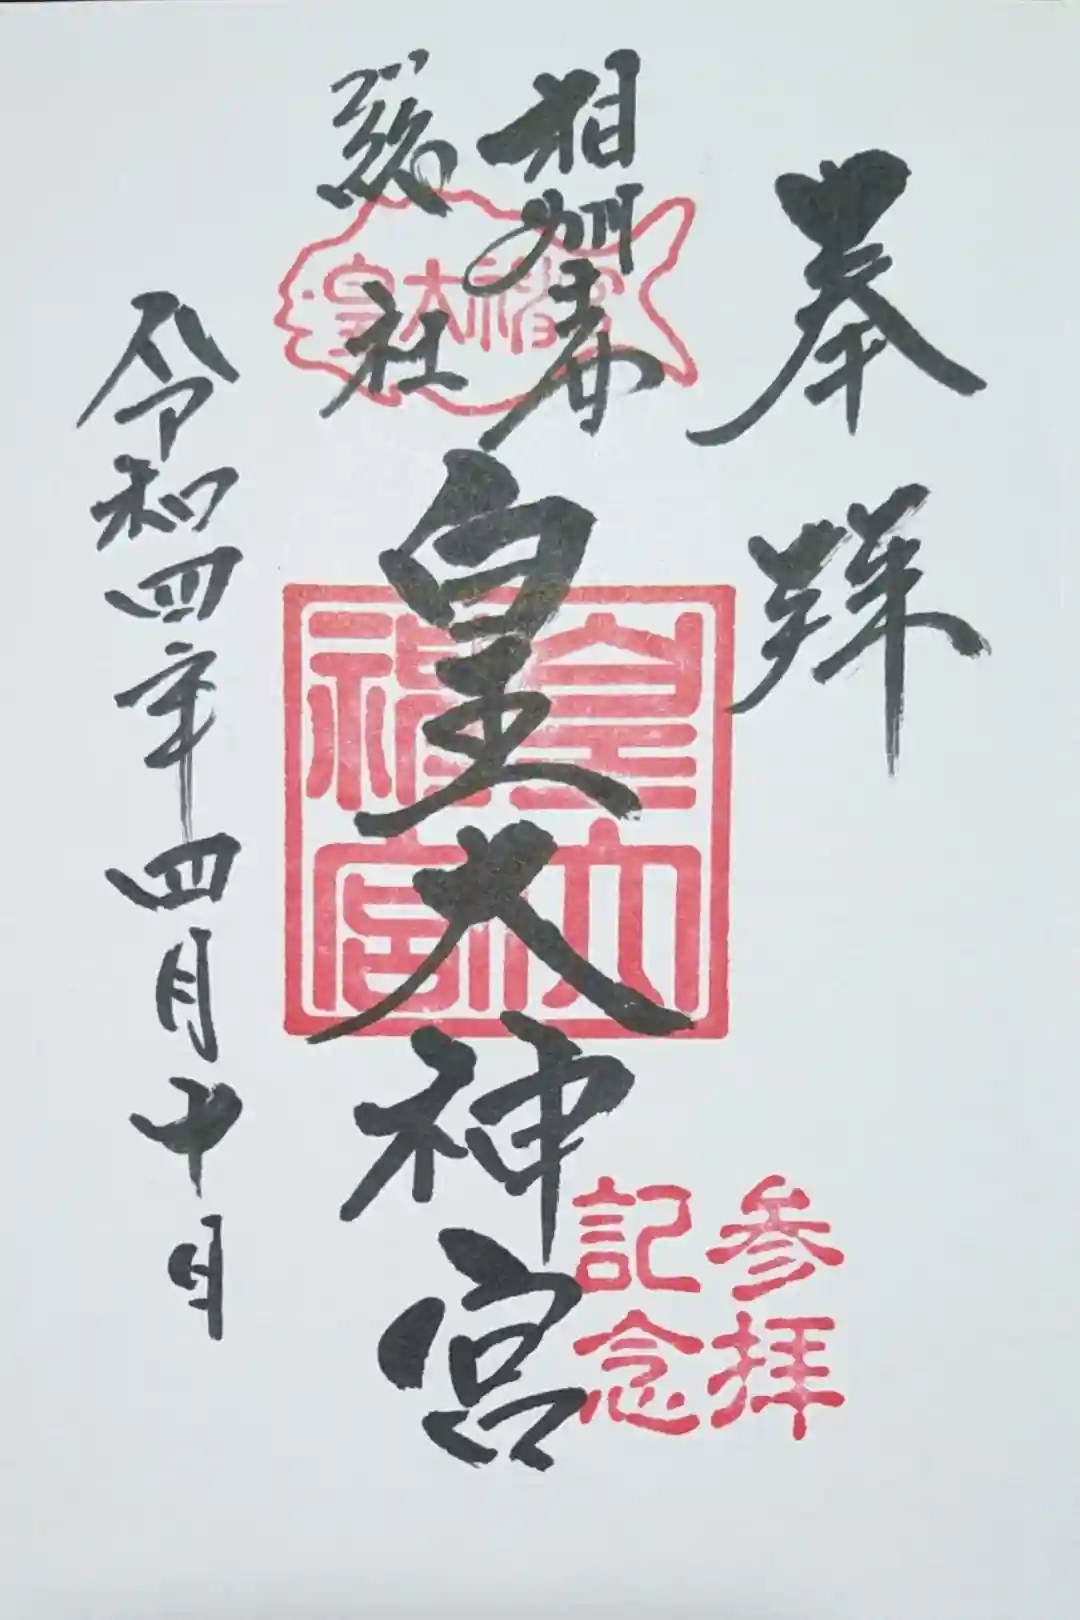 奉拜
相州春
総社
皇大神宮
令和四年四月十日
皇大神宮
皇大神宮
参拝
記念